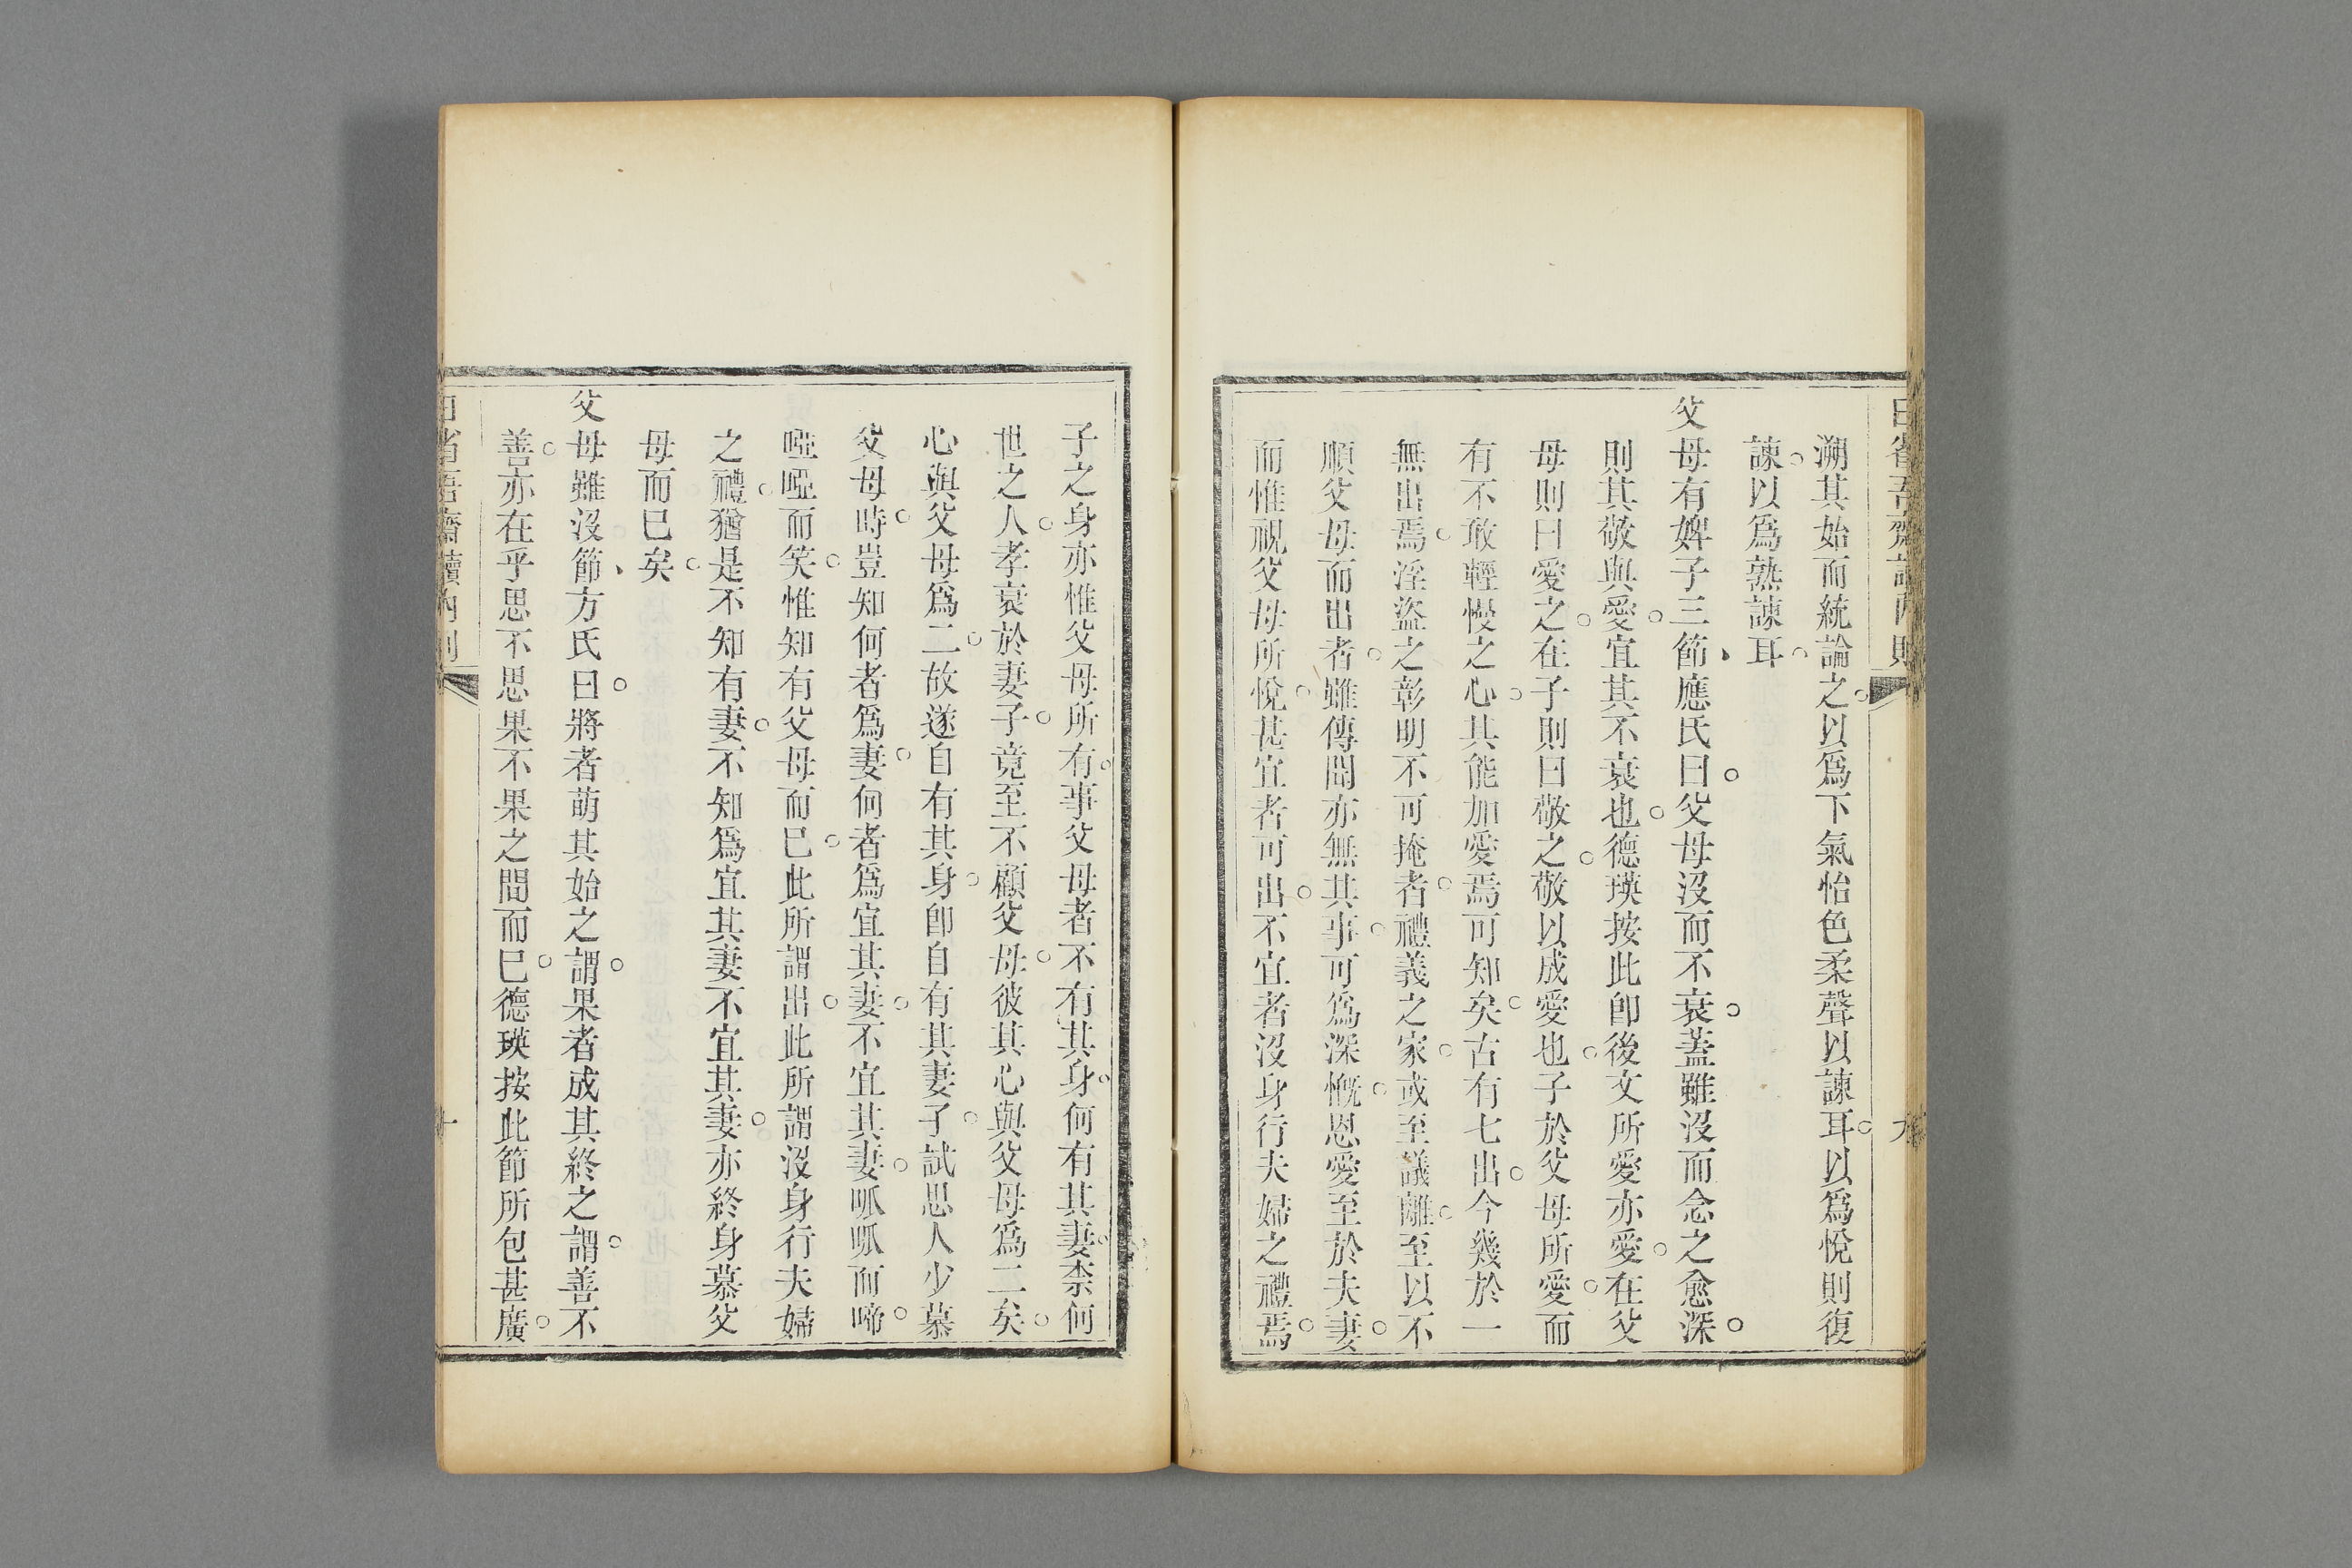 溯其始而統論之以爲下氣怡色柔聲以諫耳以爲悅則復
諫以爲熟諫耳
父母有婢子三節應氏曰父母沒而不衰蓋雖沒而念之愈深
則其敬與愛宜其不衰也德瑛按此卽後文所愛亦愛在父
母則曰愛之在子則曰敬之敬以成愛也子於父母所愛而
有不敢輕慢之心其能加愛焉可知矣古有七出今幾於一
無出焉淫盜之彰明不可掩者禮義之家或至議離至以不
順父母而出者雖傳聞亦無其事可爲深慨恩愛至於夫妻
而惟視父母所悅甚宜者可出不宜者沒身行夫婦之禮焉
子之身亦惟父母所有事父母者不有其身何有其妻柰何
世之人孝衰於妻子竟至不顧父母彼其心與父母爲二矣
心與父母爲二故遂自有其身卽自有其妻子試思人少慕
父母時豈知何者爲妻何者爲宜其妻不宜其妻呱呱而啼
啞啞而笑惟知有父母而已此所謂出此所謂沒身行夫婦
之禮猶是不知有妻不知爲宜其妻不宜其妻亦終身慕父
母而已矣
父母雖沒節方氏曰將者萌其始之謂果者成其終之謂善不
善亦在乎思不思果不果之間而已德瑛按此節所包甚廣